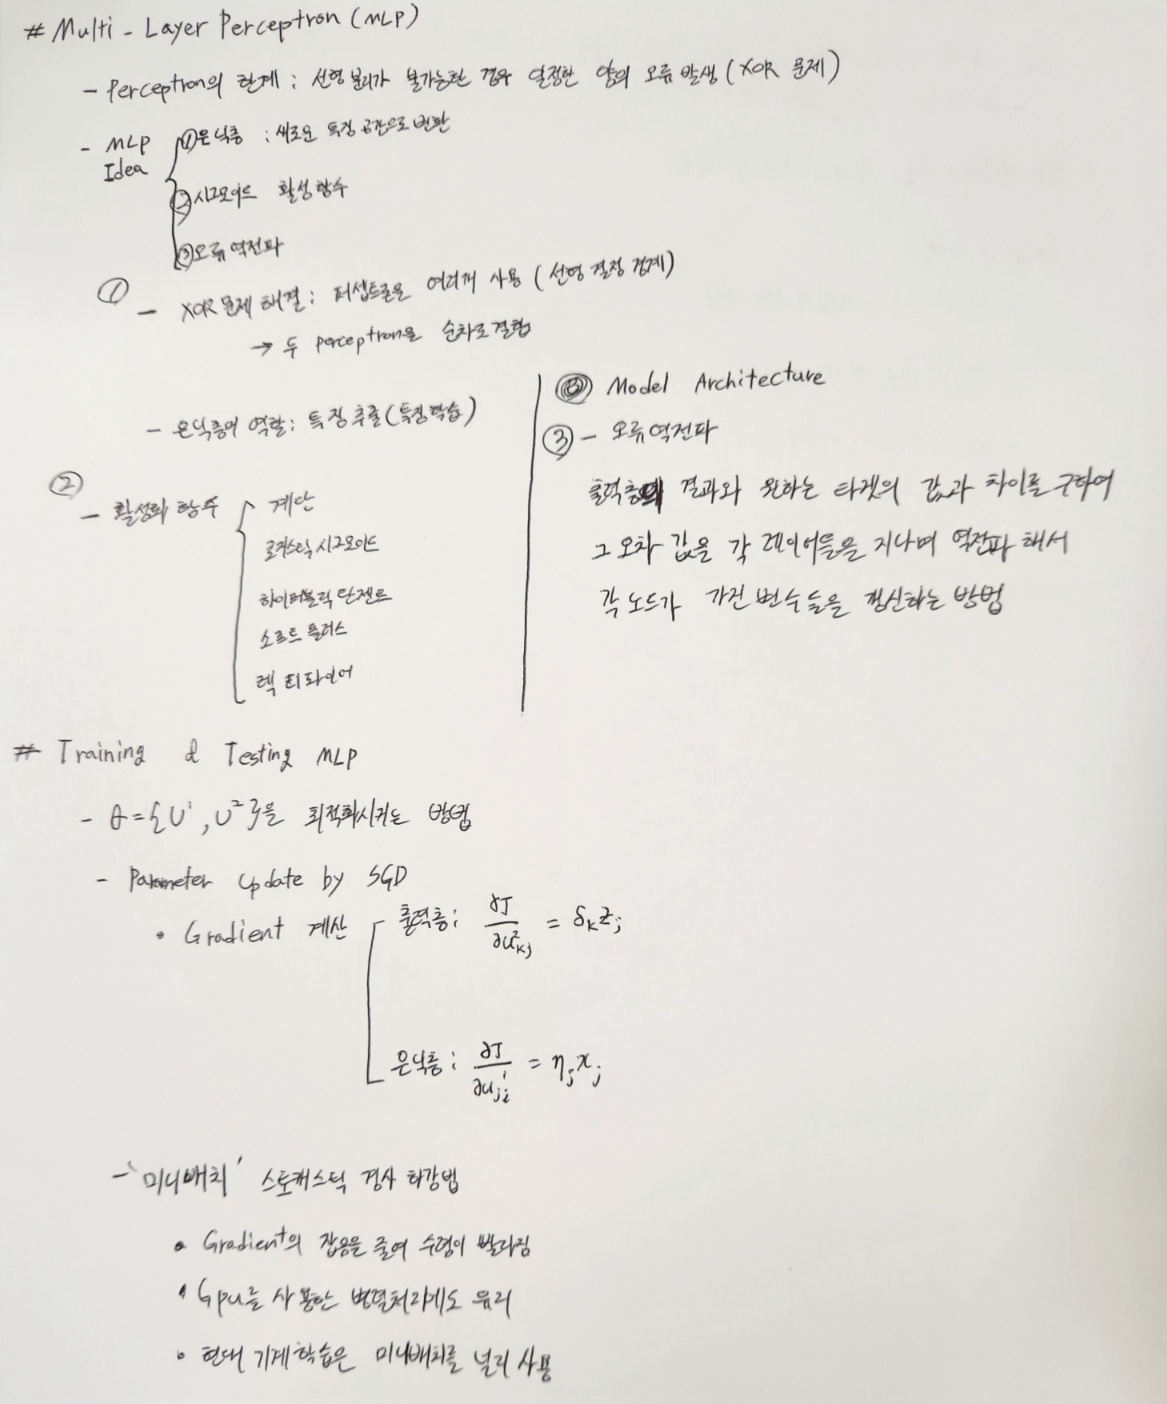 # Multi-Layer Perceptron (MLP)
- Perceptron의 한계 : 선형 분리가 불가능한 경우 일정한 양의 오류 발생 (XOR 문제)
- MLP Idea
① 은닉층 : 새로운 특징 공간으로 변환
② 시그모이드 활성함수
③ 오류 역전파
①
- XOR 문제 해결 : 퍼셉트론을 여러개 사용 (선형 결정 경계)
→ 두 perceptron을 순차로 결합
- 은닉층의 역할 : 특징 추출 (특징 학습)
②
- 활성화 함수
계단
로지스틱 시그모이드
하이퍼볼릭 탄젠트
소프트 플러스
렉티파이어
Model Architecture
③ - 오류 역전파
출력층의 결과와 원하는 타겟의 값과 차이를 구하여
그 오차 값을 각 레이어들을 지나며 역전파 해서
각 노드가 가진 변수들을 갱신하는 방법
# Training & Testing MLP
- θ = {U¹, U²}을 최적화시키는 방법
- Parameter update by SGD
• Gradient 계산
출력층 : ∂J/∂u²kj = δk zj
은닉층 : ∂J/∂u¹ji = ηj xj
- '미니배치' 스토캐스틱 경사 하강법
• Gradient의 잡음을 줄여 수렴이 빨라짐
• Gpu를 사용한 병렬처리에도 유리
• 현대 기계학습은 미니배치를 널리 사용